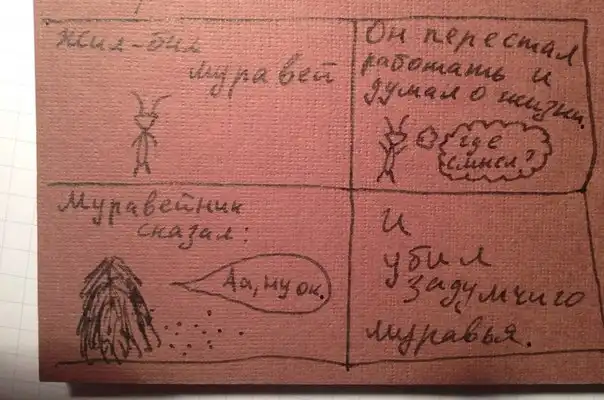 Жил-бил
муравей
Он перестал
работать и
думал о жизни.
где
смысл?
Муравейник
сказал:
Аа, ну ок.
И
убил
задумчиго
муравья.